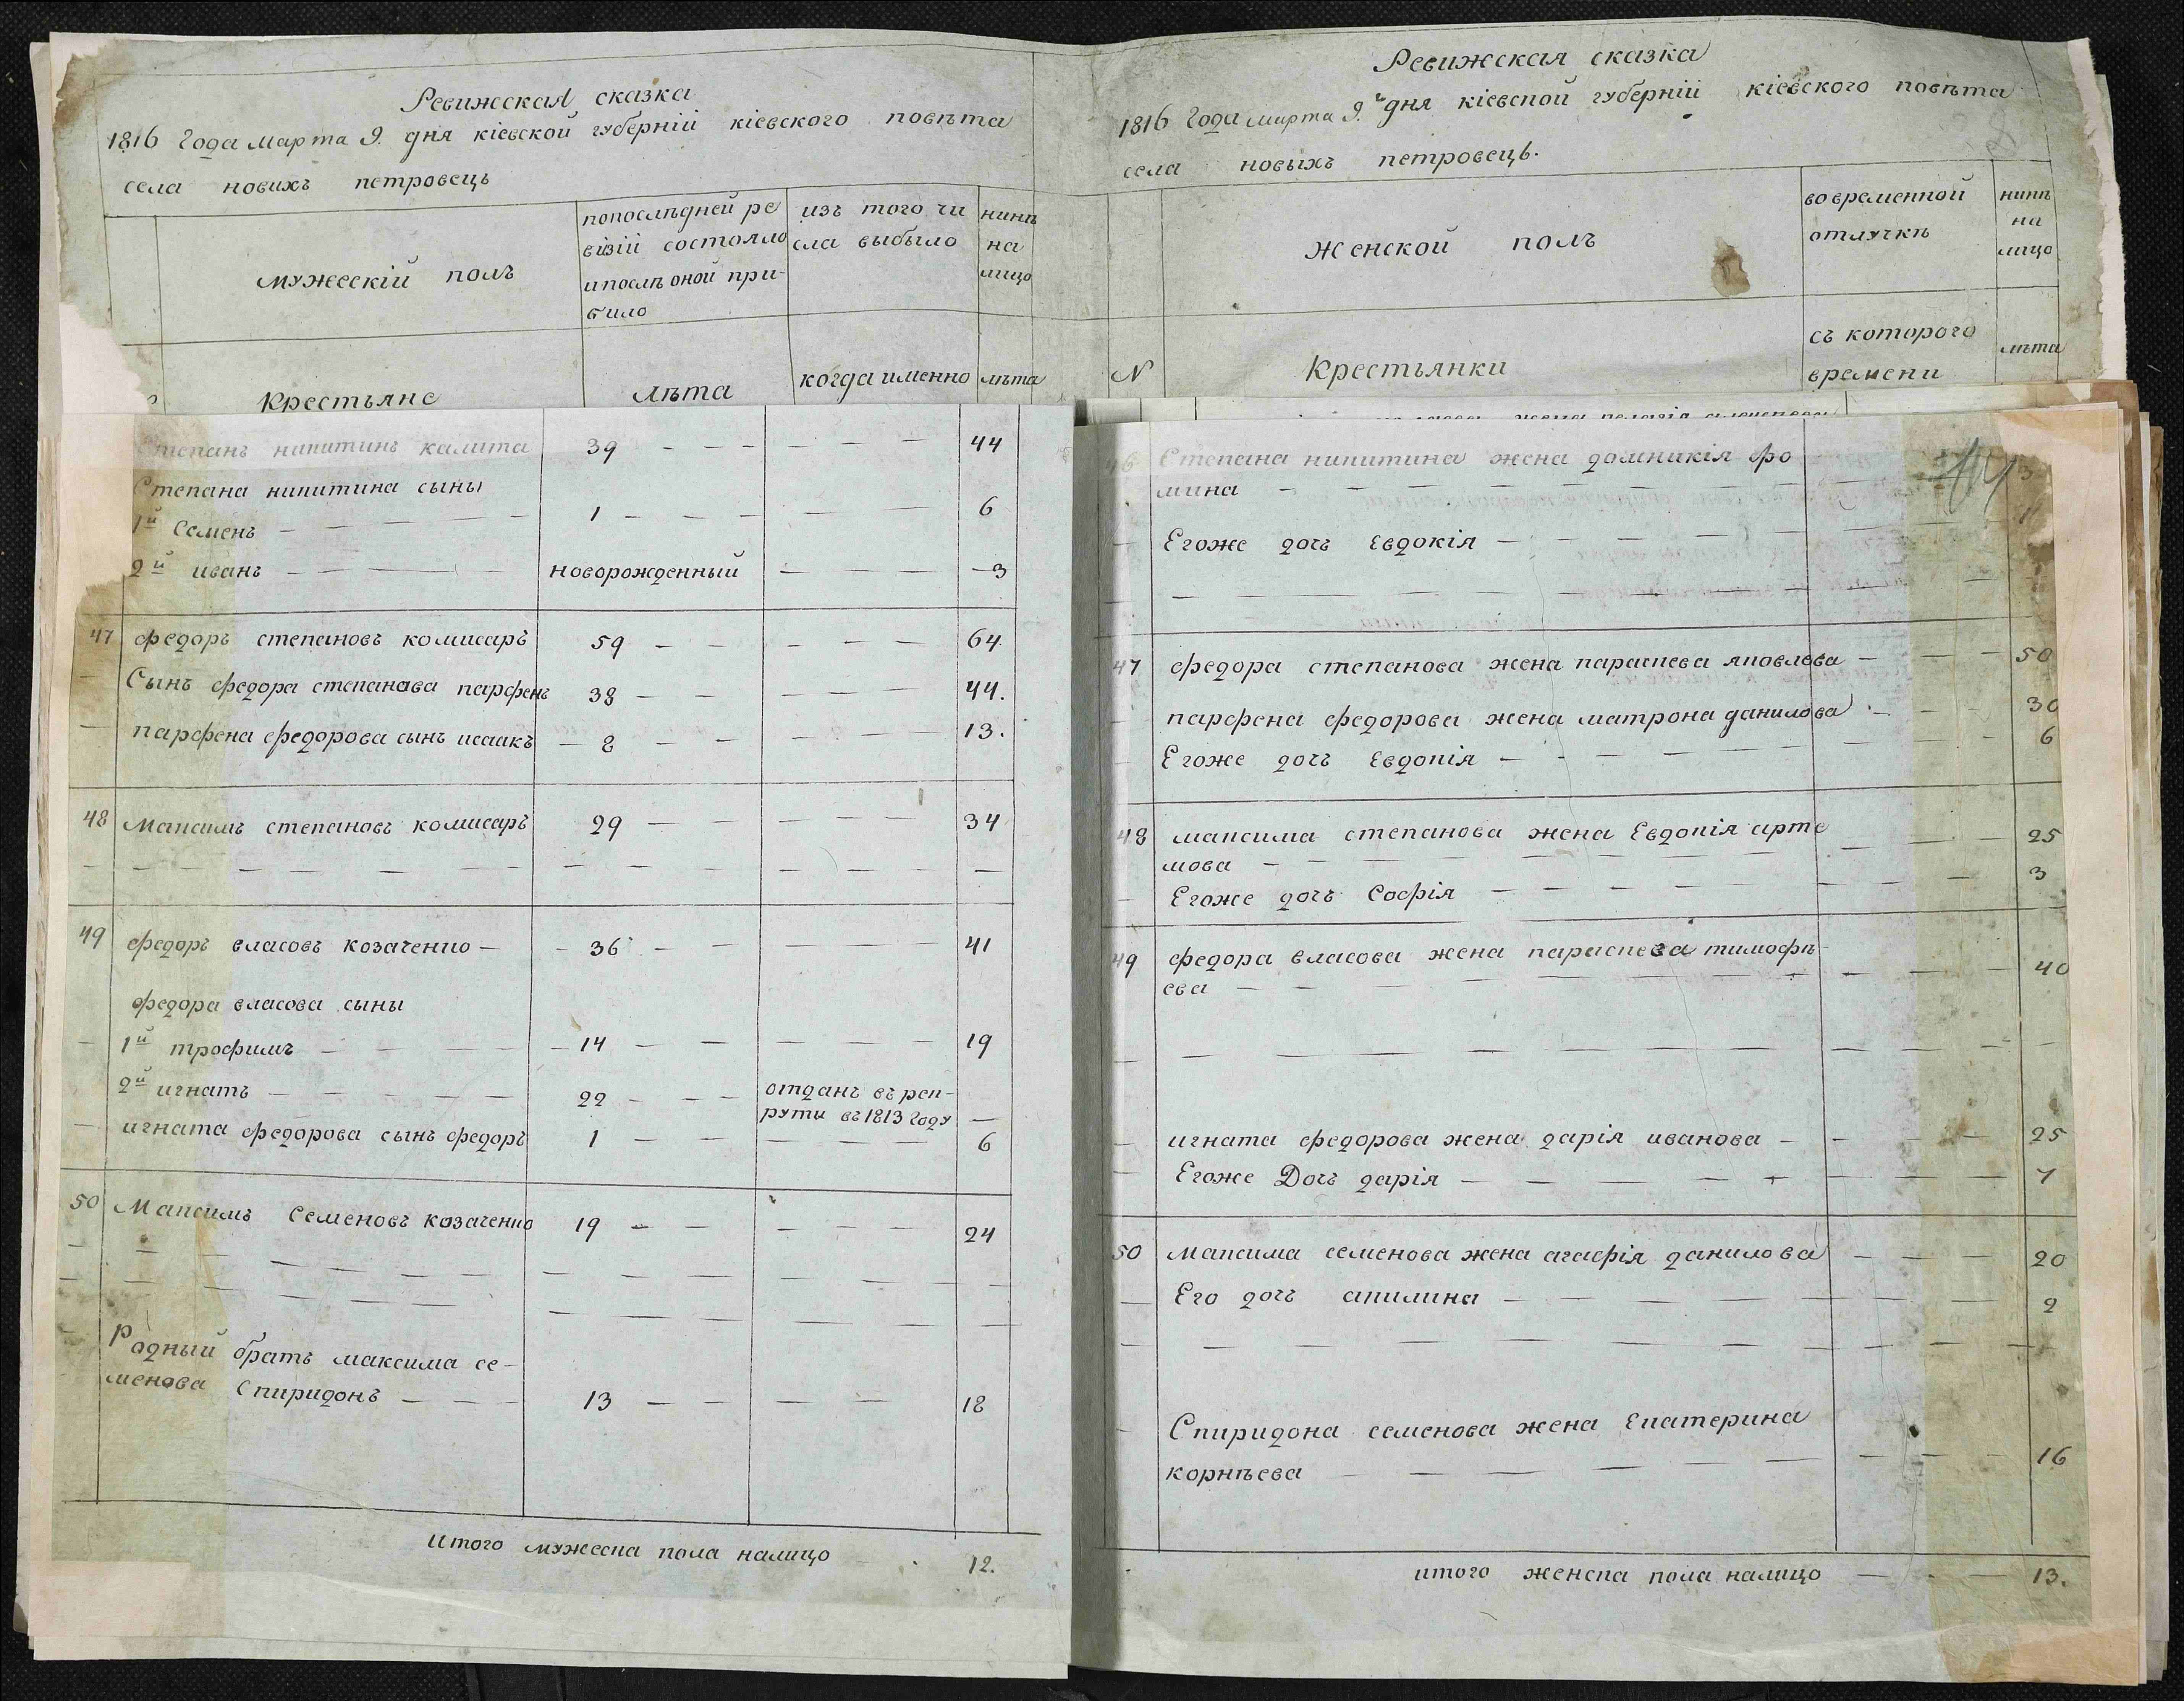 Ревижская сказка
1816 Года марта 9. дня кіевской губерніи кіевского повѣта
села новихъ петровець
мужескій полъ
попослѣдней ре
візіи состояло
ипослѣ оной при-
било
изъ того чи
сла выбыло
нинѣ
на
лицо
Крестьяне
лѣта
когда именно
лѣта
Степанъ никитинъ калита 39 — — — — — — 44
Степана никитина сыны
1й Семенъ — — — — — 1 — — — — — 6
2й иванъ — — — — новорожденный — — — — 3
47 федоръ степановъ комисаръ 59 — — — — — 64
— Сынъ федора степанова парфенъ 38 — — — — — 44.
— парфена федорова сынъ исаакъ — 8 — — — — — 13.
48 Максимъ степановъ комисаръ 29 — — — — — — 34
— — — — — — — — — — — — — — —
49 федоръ власовъ козаченко — — 36 — — — — — 41
федора власова сыны
— 1й трофимъ — — — — 14 — — — — — — 19
2й игнатъ — — — — — 22 — — — отданъ въ рек-
рути въ 1813 Году —
— игната федорова сынъ федоръ 1 — — — — — 6
50 Максимъ Семеновъ козаченко 19 — — — — — 24
Родный братъ максима се-
менова Спиридонъ — — — 13 — — — — 18
Итого мужеска пола налицо 12.
Ревижская сказка
1816 Года марта 9.й дня кіевской губерніи кіевского повѣта
села новыхъ петровець.
N
женской полъ
вовременной
отлучкѣ
нинѣ
на
лицо
Крестьянки
съ которого
времени
лѣта
46 Степана никитина жена домникія фо
мина — — — — — — —
— Егоже дочь Евдокія — — — — —
47 федора степанова жена параскева яковлева — — — 50
— парфена федорова жена матрона данилова — — — 30
— Егоже дочь Евдокія — — — — — — — — 6
48 максима степанова жена Евдокія арте
мова — — — — — — — — — — 25
— Егоже дочь Софія — — — — — — — — 3
49 федора власова жена параскева тимофѣ-
ева — — — — — — — — — 40
— — — — — — — — — — — —
— игната федорова жена дарія иванова — — — — 25
— Егоже Дочь дарія — — — — — — — — 7
50 максима семенова жена агафія данилова — — — 20
— Его дочь акилина — — — — — — — — 2
— — — — — — — — — — —
— Спиридона семенова жена Екатерина
корнѣева — — — — — — — — — 16
итого женска пола налицо — — — 13.